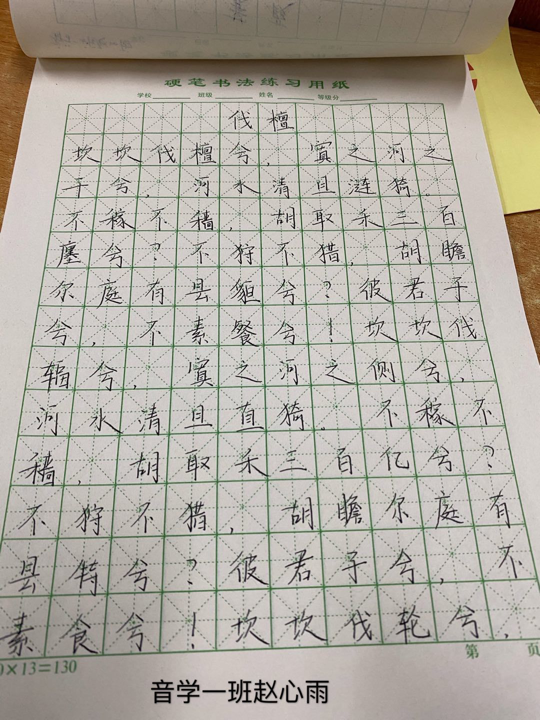 硬笔书法练习用纸
学校 班级 姓名 等级分
伐檀
坎坎伐檀兮，寘之河之
干兮，河水清且涟猗。
不稼不穑，胡取禾三百
廛兮？不狩不猎，胡瞻
尔庭有县貆兮？彼君子
兮，不素餐兮！坎坎伐
辐兮，寘之河之侧兮，
河水清且直猗。不稼不
穑，胡取禾三百亿兮？
不狩不猎，胡瞻尔庭有
县特兮？彼君子兮，不
素食兮！坎坎伐轮兮，
0×13=130 第 页
音学一班赵心雨